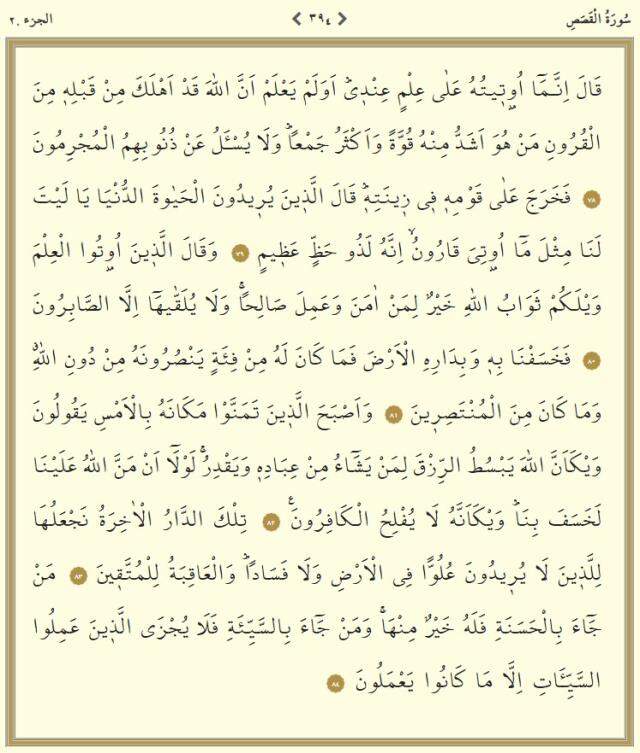 سُورَةُ الْقَصَصِ ❮ ٣٩٤ ❯ الجزء ٢٠
قَالَ اِنَّمَٓا اُو۫ت۪يتُهُ عَلٰى عِلْمٍ عِنْد۪يۜ اَوَلَمْ يَعْلَمْ اَنَّ اللّٰهَ قَدْ اَهْلَكَ مِنْ قَبْلِه۪ مِنَ
الْقُرُونِ مَنْ هُوَ اَشَدُّ مِنْهُ قُوَّةً وَاَكْثَرُ جَمْعاًۜ وَلَا يُسْـَٔلُ عَنْ ذُنُوبِهِمُ الْمُجْرِمُونَ
٧٨ فَخَرَجَ عَلٰى قَوْمِه۪ ف۪ي ز۪ينَتِه۪ۜ قَالَ الَّذ۪ينَ يُر۪يدُونَ الْحَيٰوةَ الدُّنْيَا يَا لَيْتَ
لَنَا مِثْلَ مَٓا اُو۫تِيَ قَارُونُۙ اِنَّهُ لَذُو حَظٍّ عَظ۪يمٍ ٧٩ وَقَالَ الَّذ۪ينَ اُو۫تُوا الْعِلْمَ
وَيْلَكُمْ ثَوَابُ اللّٰهِ خَيْرٌ لِمَنْ اٰمَنَ وَعَمِلَ صَالِحاًۚ وَلَا يُلَقّٰيهَٓا اِلَّا الصَّابِرُونَ
٨٠ فَخَسَفْنَا بِه۪ وَبِدَارِهِ الْاَرْضَ فَمَا كَانَ لَهُ مِنْ فِئَةٍ يَنْصُرُونَهُ مِنْ دُونِ اللّٰهِۗ
وَمَا كَانَ مِنَ الْمُنْتَصِر۪ينَ ٨١ وَاَصْبَحَ الَّذ۪ينَ تَمَنَّوْا مَكَانَهُ بِالْاَمْسِ يَقُولُونَ
وَيْكَاَنَّ اللّٰهَ يَبْسُطُ الرِّزْقَ لِمَنْ يَشَٓاءُ مِنْ عِبَادِه۪ وَيَقْدِرُۚ لَوْلَٓا اَنْ مَنَّ اللّٰهُ عَلَيْنَا
لَخَسَفَ بِنَاۜ وَيْكَاَنَّهُ لَا يُفْلِحُ الْكَافِرُونَ۟ ٨٢ تِلْكَ الدَّارُ الْاٰخِرَةُ نَجْعَلُهَا
لِلَّذ۪ينَ لَا يُر۪يدُونَ عُلُواًّ فِي الْاَرْضِ وَلَا فَسَاداًۜ وَالْعَاقِبَةُ لِلْمُتَّق۪ينَ ٨٣ مَنْ
جَٓاءَ بِالْحَسَنَةِ فَلَهُ خَيْرٌ مِنْهَاۚ وَمَنْ جَٓاءَ بِالسَّيِّئَةِ فَلَا يُجْزَى الَّذ۪ينَ عَمِلُوا
السَّيِّـَٔاتِ اِلَّا مَا كَانُوا يَعْمَلُونَ ٨٤